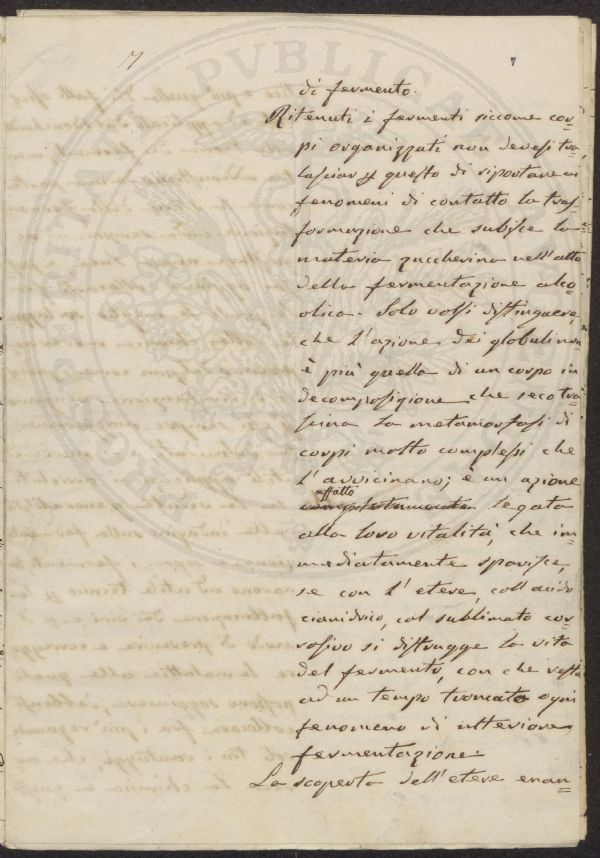 7
7
di fermento.
Ritenuti i fermenti siccome cor=
pi organizzati non devesi tra=
lasciar questo di riportare ai
fenomeni di contatto la tras=
formazione che subisce la
materia zuccherina nell'atto
della fermentazione alco=
olica. Solo volsi distinguere,
che l'azione dei globuli non
è più quella di un corpo in
decomposizione che seco tra=
scina la metamorfosi di
corpi molto complessi che
l'avvicinano; è un azione
affatto
completamente legata
alla loro vitalità, che im=
mediatamente sparisce,
se con l'etere, coll'acido
cianidrico, col sublimato cor=
rosivo si distrugge la vita
del fermento, con che resta
ad un tempo troncato ogni
fenomeno di ulteriore
fermentazione.
La scoperta dell'etere enan=